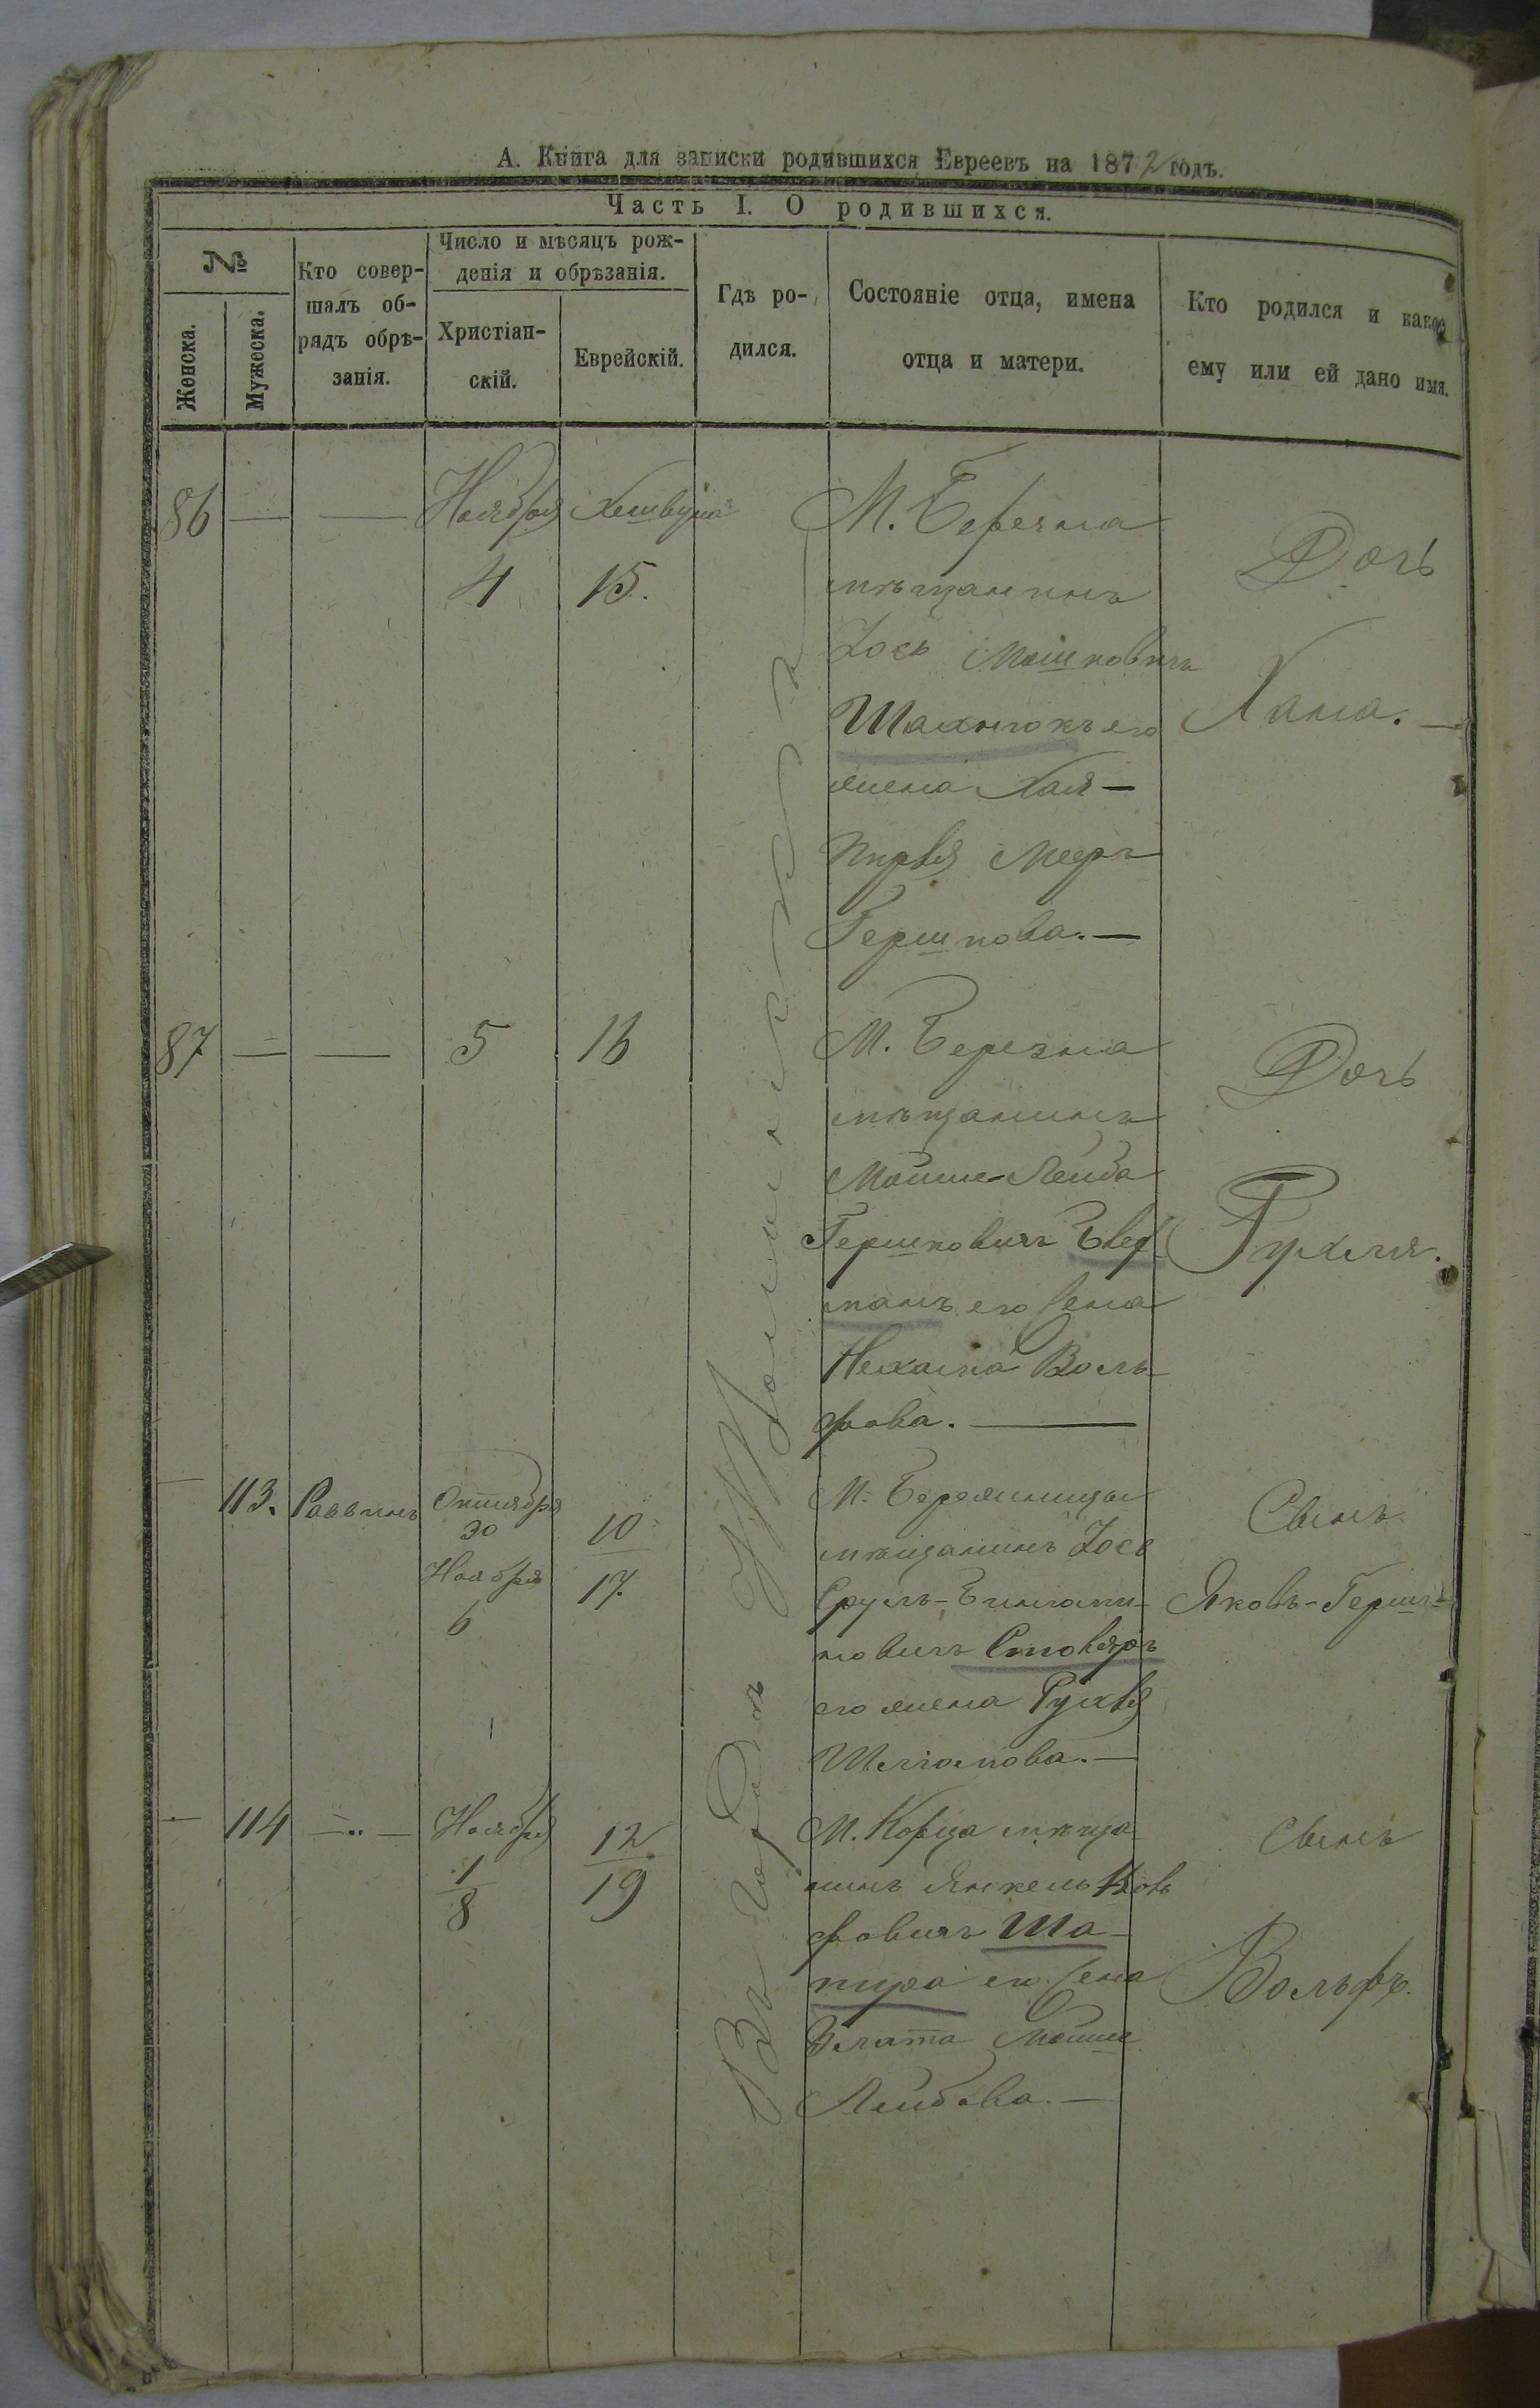 А. Книга для записки родившихся Евреевъ на 1872 годъ.
Часть I. О родившихся.
№
Женска.
Мужеска.
Кто совер-
шалъ об-
рядъ обрѣ-
занія.
Число и мѣсяцъ рож-
денія и обрѣзанія.
Христіан-
скій.
Еврейскій.
Гдѣ ро-
дился.
Состояніе отца, имена
отца и матери.
Кто родился и какое
ему или ей дано имя.
Въ городѣ
86 — — Ноября
4
Хешвуна
15.
М. Березна
мѣщанинъ
Іось Мошковичъ
Шахнюкъ его
жена Хая —
Пирля Мееръ
Гершкова. —
Дочь
Хана. —
87. — — 5 16
М. Березна
мѣщанинъ
Мойше-Лейба
Гершковичъ
манъ его жена
Нехама Воль-
фова. —
Дочь
Рухля.
— 113. Раввинъ
Октября
30
Ноября
6
10
17.
М.
мѣщанинъ Іось
Сруль-Биньями-
новичъ Столяръ
его жена Рухля
Шліомова. —
Сынъ
Яковъ-Гершъ
— 114 —„—
Ноября
1
8
12
19
М. Корца мѣща
нинъ Янкель Воль
фовичъ Ша-
пира его жена
Злата Мойше
Лейбова. —
Сынъ
Вольфъ.